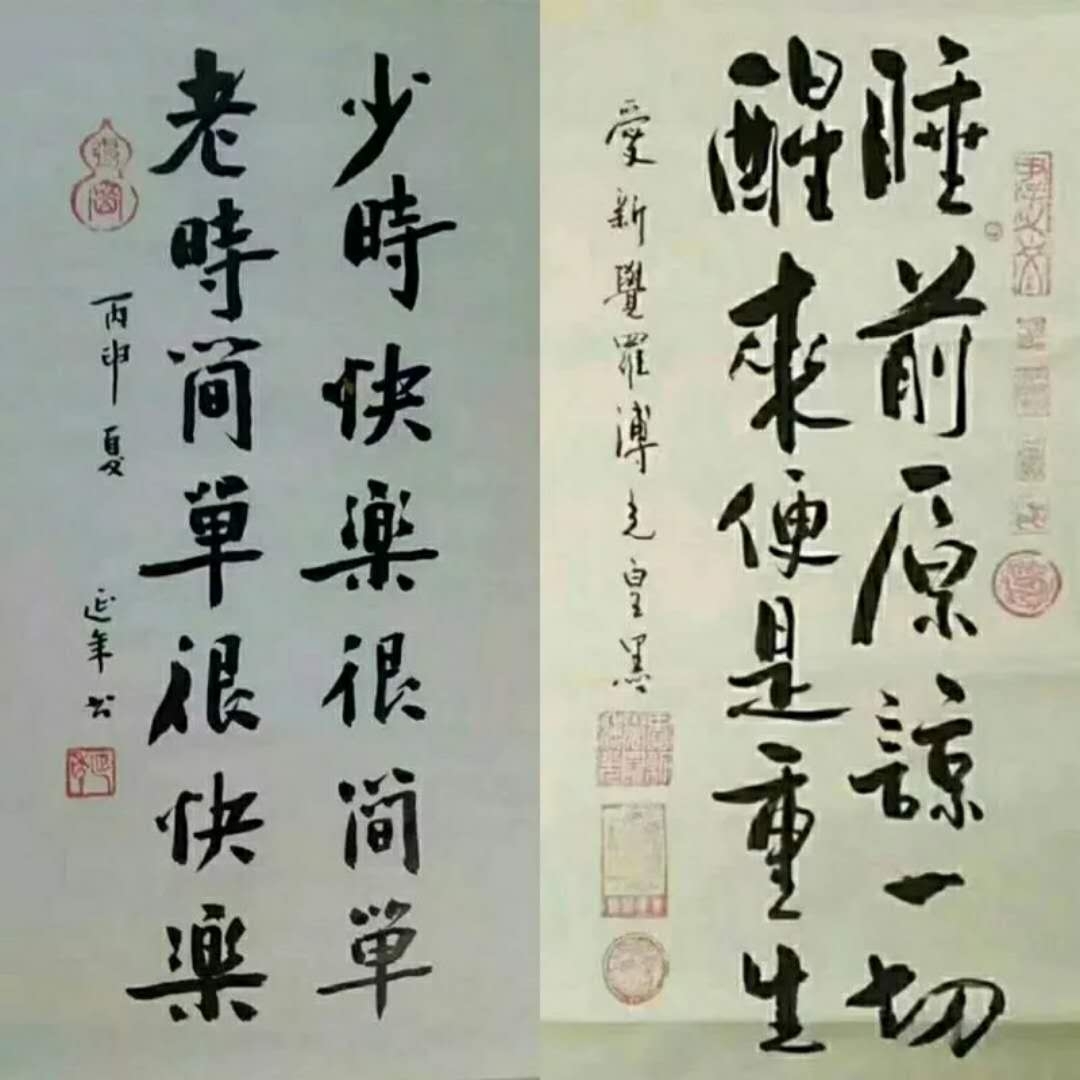 少時快樂很简單
老時简單很快樂
丙申夏 延年书
睡前原諒一切
醒來便是重生
愛新覺羅溥光皇墨